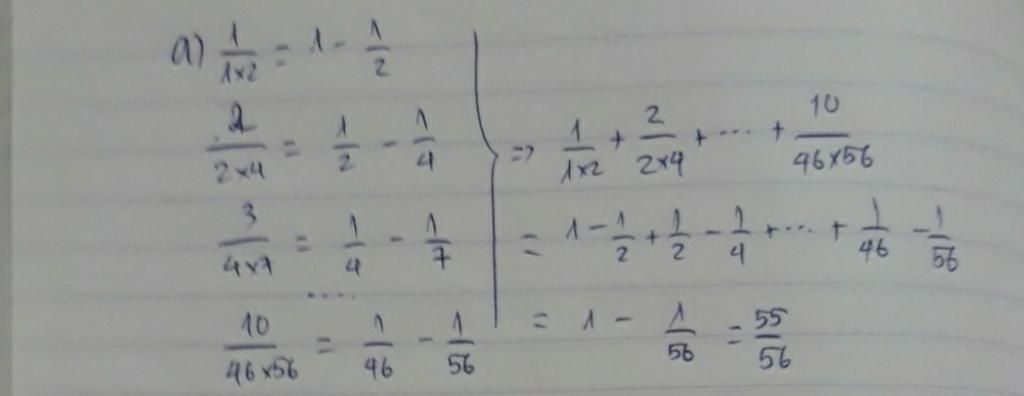 a) 1/(1×2) = 1 - 1/2
2/(2×4) = 1/2 - 1/4
3/(4×7) = 1/4 - 1/7
.....
10/(46×56) = 1/46 - 1/56
=> 1/(1×2) + 2/(2×4) + .... + 10/(46×56)
= 1 - 1/2 + 1/2 - 1/4 + ... + 1/46 - 1/56
= 1 - 1/56 = 55/56